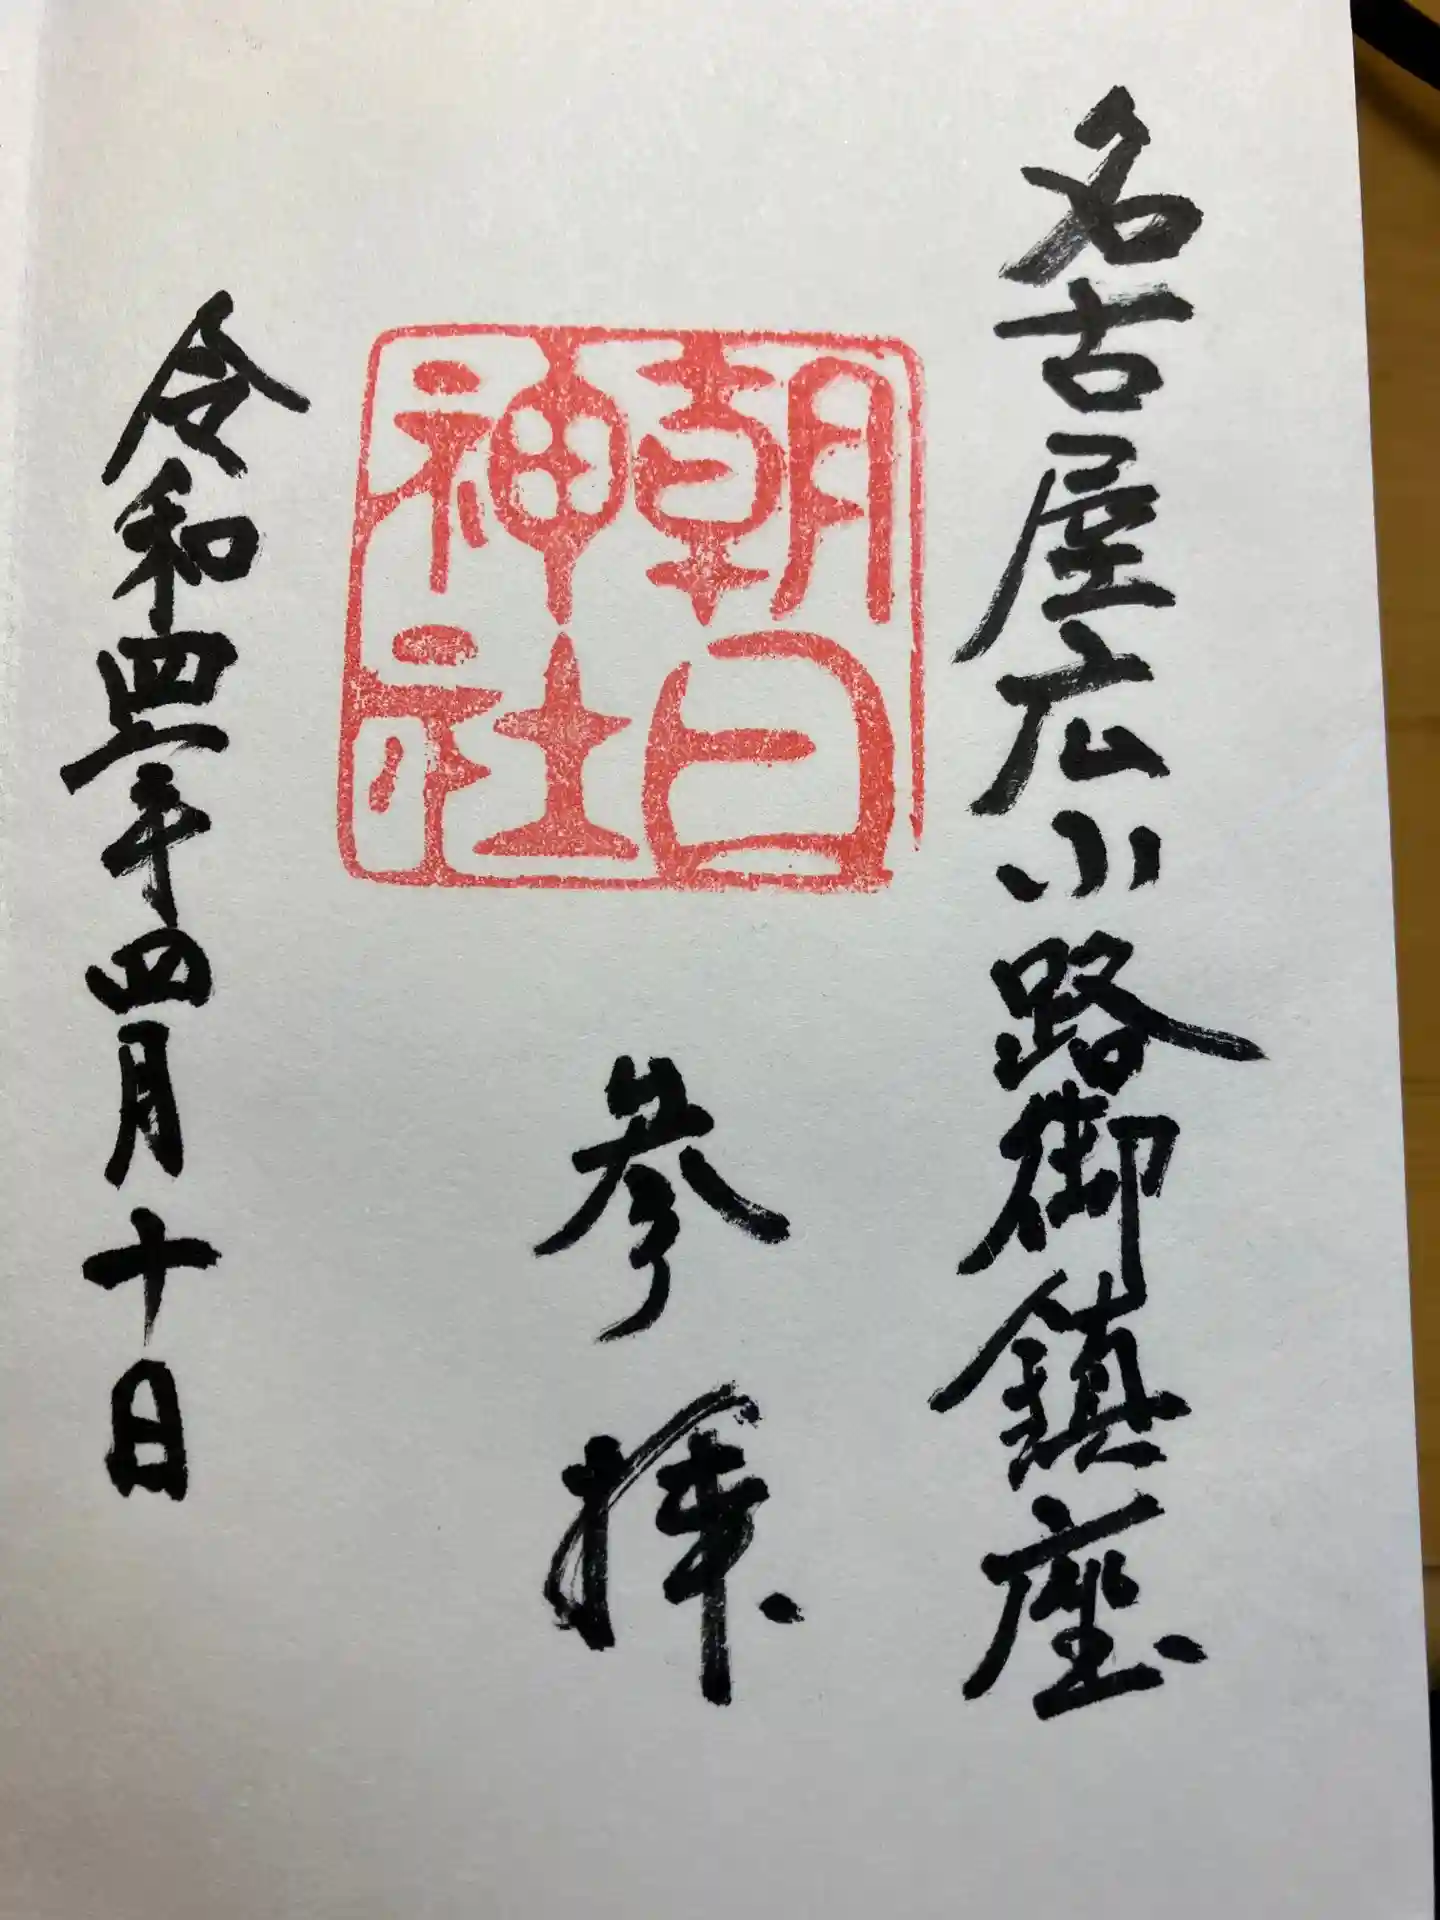 名古屋広小路御鎮座
朝日
神社
参拝
令和四年四月十日